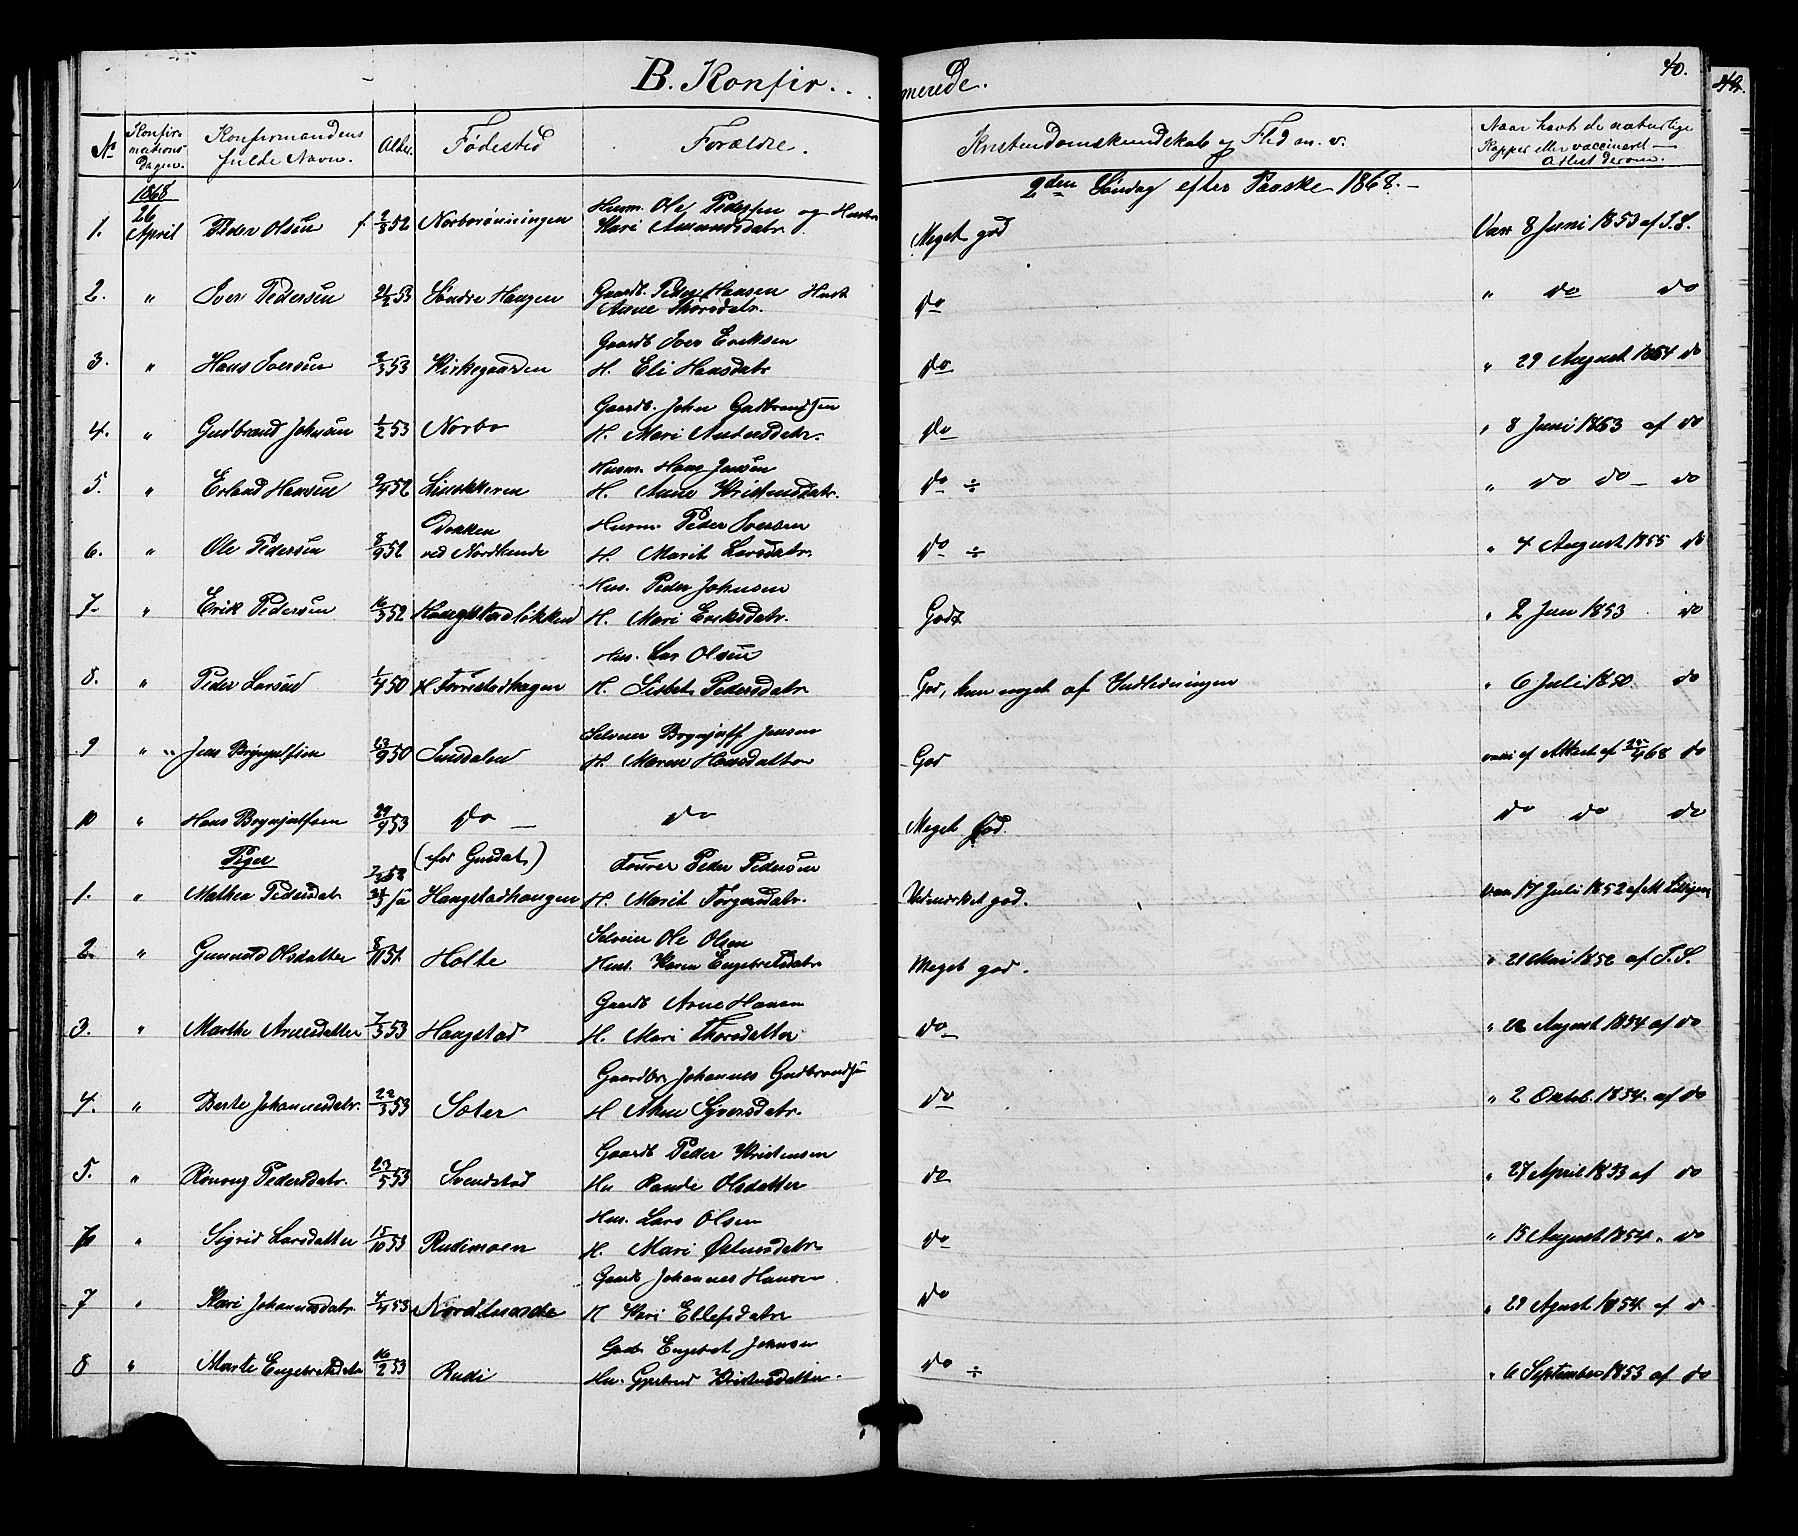 B. Konfir. . . merede.
40.
No Konfirmations-Dagen. Konfirmandens fulde Navn. Alder Fødested Forældre. Kristendomskundskab og Flid m. v. Naar havt de naturlige Kopper eller vaccineret — Attest derom.
1868 2den Søndag efter Paaske 1868. —
1. 26 April Peder Olsen f 2/3 52 Norbrønningen Husm. Ole Pedersen og Hustr. Mari Amundsdatr. Meget god Vacc 8 Juni 1853 af T. S.
2. " Iver Pedersen 21/2 53 Søndre Haugen Gaardb. Peder Hansen Hust. Anne Thorsdatr. do " do do
3. " Hans Iversen 2/3 53 Kirkegaarden Gaardb Iver Eriksen H. Eli Hansdatr do " 29 August 1854 do
4. " Gudbrand Johnsen 1/2 53 Norbo Gaardb. John Gudbrandsen H. Mari Andersdatr. do " 8 Juni 1853 af do
5. " Erland Hansen 2/4 52 Husm. Hans Jensen H. Anne Kristensdatr. do ÷ " do do — do
6. " Ole Pedersen 8/9 52 Bakken ved Nordlunde Husm Peder Iversen H. Marit Larsdatr. do ÷ " 4 August 1855 do
7. " Erik Pedersen 16/3 52 Haugstadløkken Hus. Peder Johnsen H. Mari Eriksdatr. Godt " 2 Jun 1853 do
8. " Peder Larsen 1/4 50 Torrestadhagen Hus. Lars Olsen H. Lisbet Pedersdatr God, kun noget af Indledningen " 6 Juli 1850 do
9 " Jens Brynjulfsen 23/9 50 Selveier Brynjulf Jensen H. Maren Hansdatter God vacc af Attest af 25/4 68 do
10 " Hans Brynjulfsen 29/9 53 do — do Meget God. do do do
Piger
1. " Mathea Pedersdat. 7/3 52 (for Gusdal) Haugstadhaugen Peder Pedersen H. Marit Torgersdatr. Udmærket god. vac 17 Juli 1852 af
2. " Gunnild Olsdatter 8/11 51 Holte Selveier Ole Olsen Hust. Karen Engebretsdatr Meget god. " 21 Mai 1852 af T. S.
3. " Marthe Arnesdatter 7/3 53 Haugstad Gaardb Arne Hansen H. Mari Thorsdatter do " 22 August 1854 af do
4. " Berte Johannesdatr. 22/3 53 Soter Gaardbr. Johannes Gudbrandsen H Anne Syversdatr. do " 2 Oktob. 1854. af do
5. " Rønnug Pedersdatr. 23/5 53 Svendstad Gaardb Peder Kristensen Hu Rande Olsdatter do " 27 April 1853 af do
6 " Sigrid Larsdatter 15/10 53 Rudimoen Hus. Lars Olsen H. Mari Østensdatr do " 15 August 1854. do
7 " Kari Johannesdatr. 4/4 53 Nordlunde Gaardb Johannes Hansen H Kari Ellefsdatr do " 29 Agust 1854 af d
8 " Marte Engebretsdatr 16/2 53 Rudi Gaardb Engebret Johnsen Hu. Gjertrud Kristensdatter. do ÷ " 6 September 1853 af do